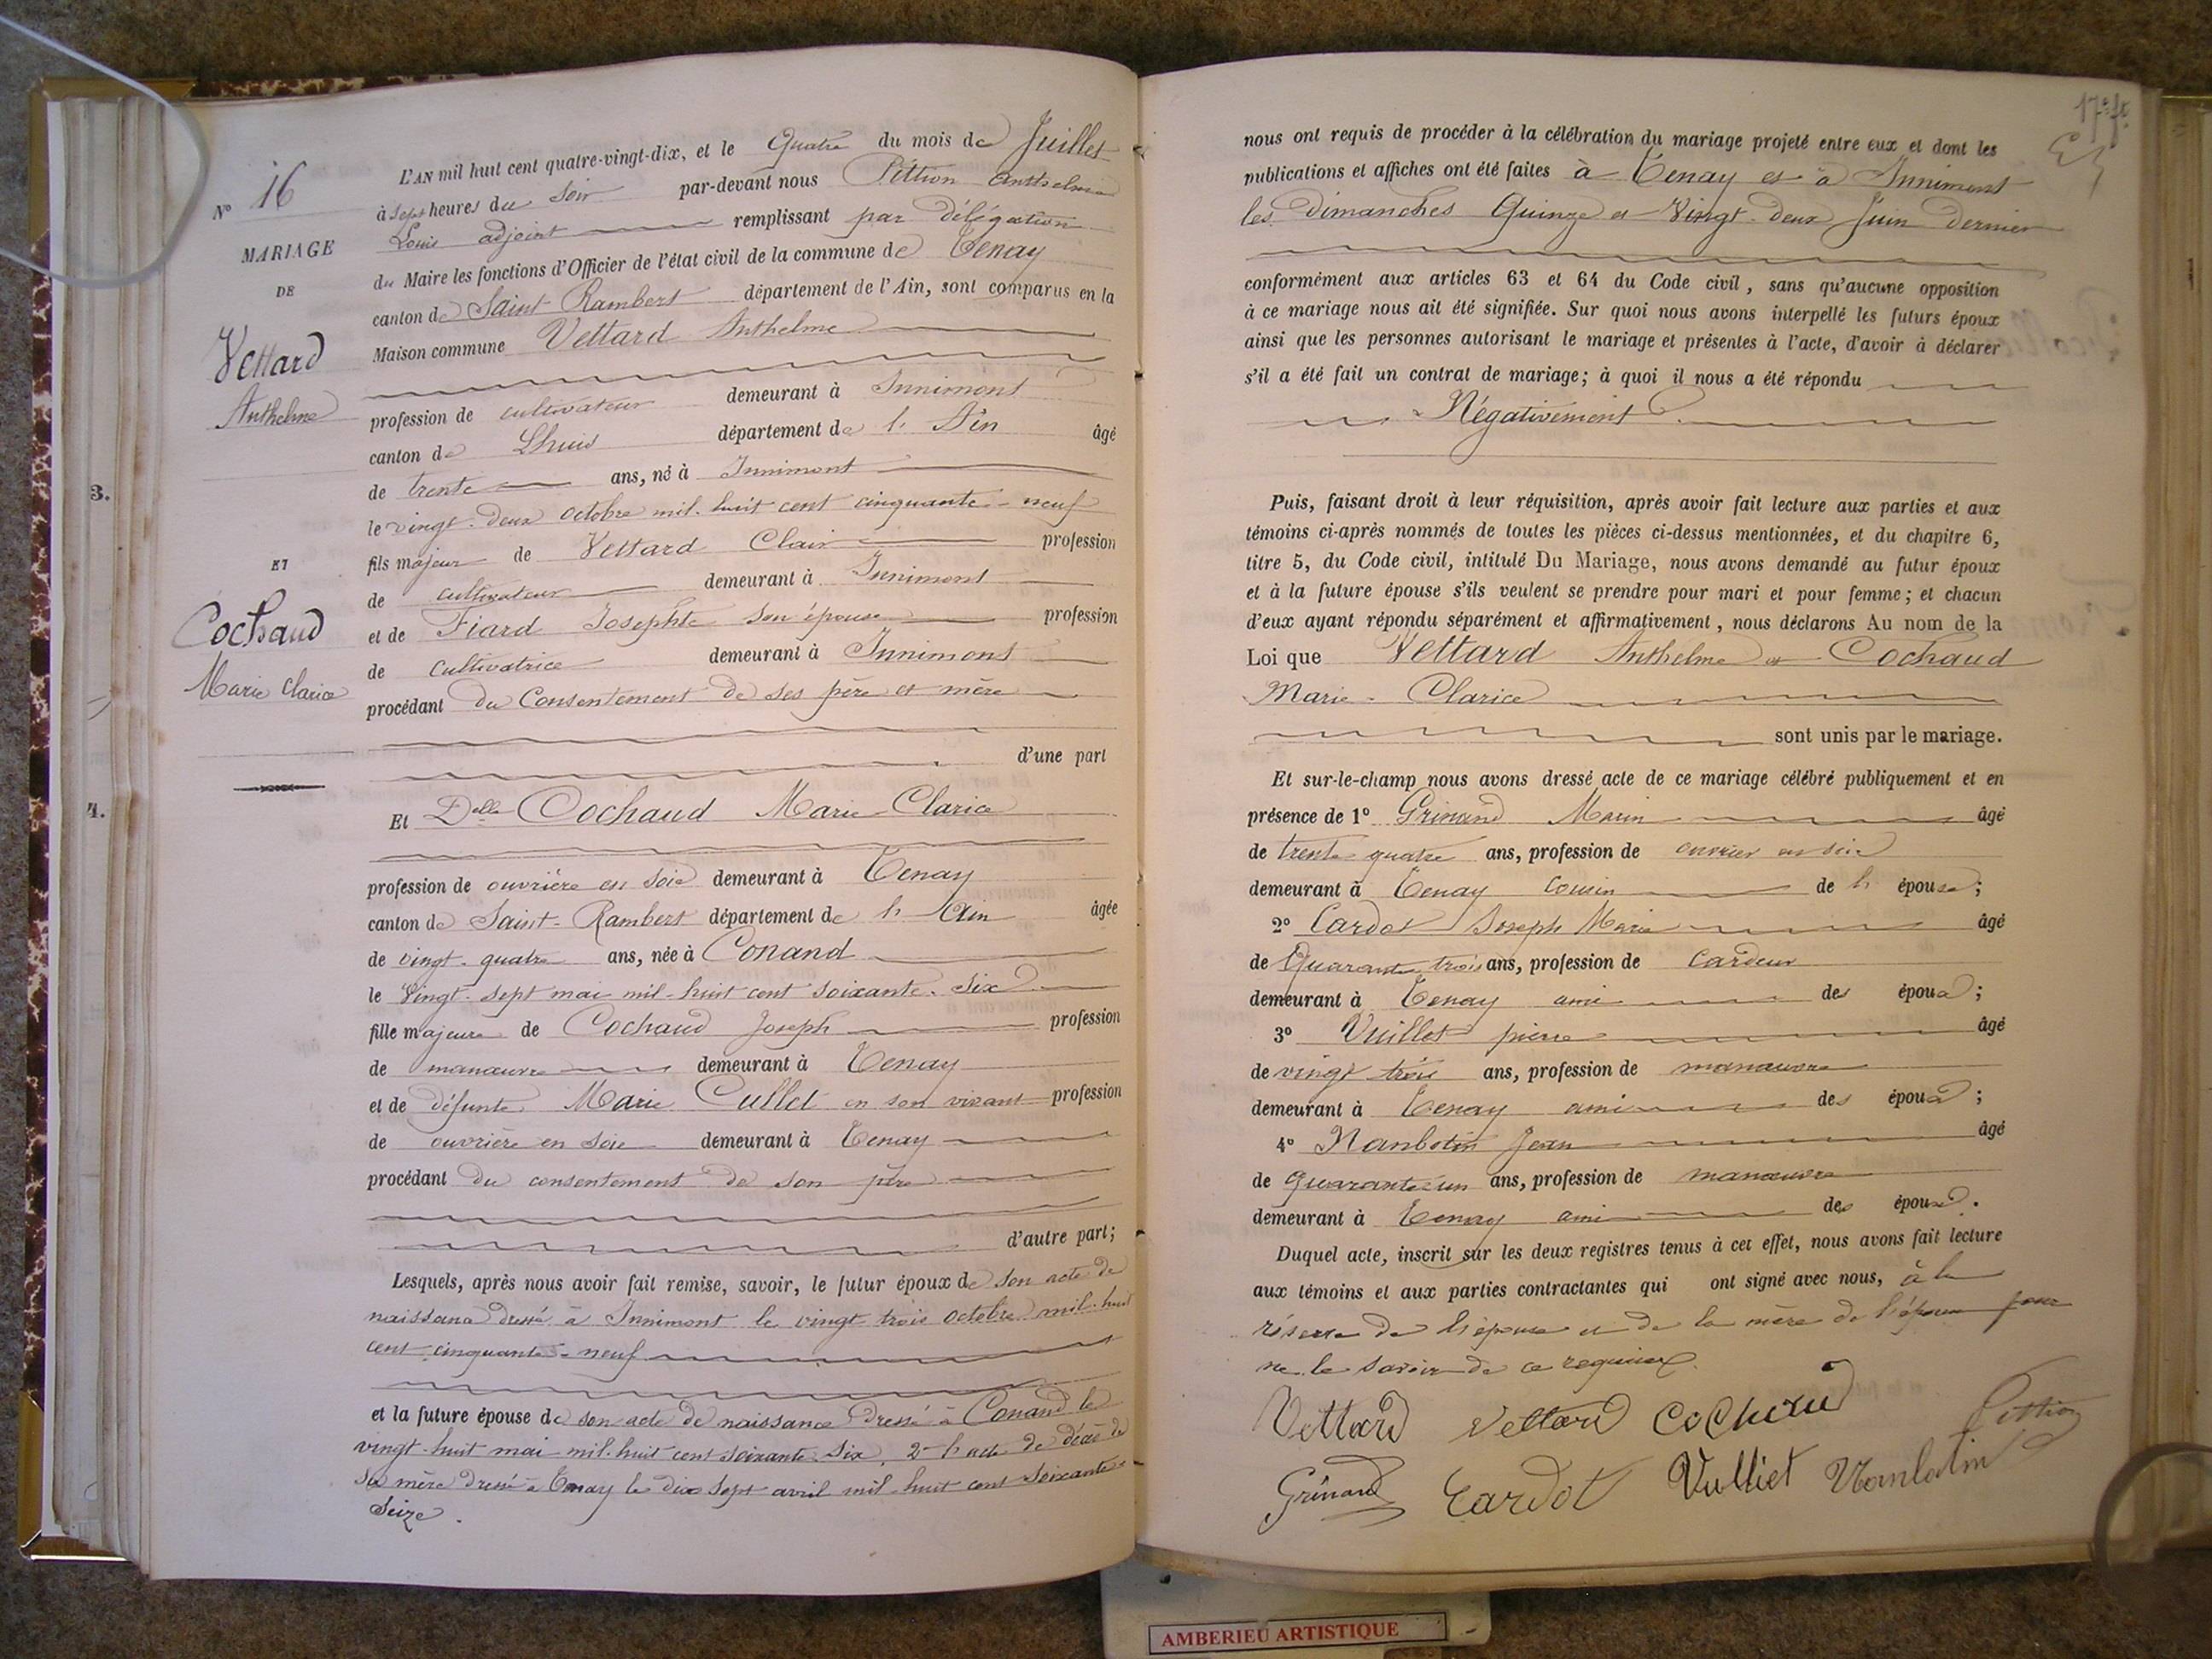 N° 16
MARIAGE
DE
Vettard
Anthelme
ET
Cochaud
Marie Clarice
3.
4.
L'AN mil huit cent quatre-vingt-dix, et le Quatre du mois de Juillet
à sept heures du soir par-devant nous Pittion Anthelme
Louis adjoint remplissant par délégation
du Maire les fonctions d'Officier de l'état civil de la commune de Tenay
canton de Saint Rambert département de l'Ain, sont comparus en la
Maison commune Vettard Anthelme
profession de cultivateur demeurant à Innimont
canton de Lhuis département de l'Ain âgé
de trente ans, né à Innimont
le vingt-deux octobre mil-huit cent cinquante-neuf
fils majeur de Vettard Clair profession
de cultivateur demeurant à Innimont
et de Fiard Josephte son épouse profession
de cultivatrice demeurant à Innimont
procédant du Consentement de ses père et mère
d'une part
Et Delle Cochaud Marie-Clarice
profession de ouvrière en soie demeurant à Tenay
canton de Saint-Rambert département de l'Ain âgée
de vingt-quatre ans, née à Conand
le Vingt-sept mai mil-huit cent soixante-six
fille majeure de Cochaud Joseph profession
de manœuvre demeurant à Tenay
et de défunte Marie Cullet en son vivant profession
de ouvrière en soie demeurant à Tenay
procédant du consentement de son père
d'autre part;
Lesquels, après nous avoir fait remise, savoir, le futur époux de son acte de
naissance dressé à Innimont le vingt trois octobre mil-huit
cent cinquante-neuf
et la future épouse de son acte de naissance dressé à Conand le
vingt-huit mai mil-huit cent soixante six, 2° l'acte de décès de
sa mère dressé à Tenay le dix sept avril mil-huit cent soixante-
seize.
17e ft
nous ont requis de procéder à la célébration du mariage projeté entre eux et dont les
publications et affiches ont été faites à Tenay et à Innimont
les Dimanches Quinze et Vingt-deux Juin dernier
conformément aux articles 63 et 64 du Code civil, sans qu'aucune opposition
à ce mariage nous ait été signifiée. Sur quoi nous avons interpellé les futurs époux
ainsi que les personnes autorisant le mariage et présentes à l'acte, d'avoir à déclarer
s'il a été fait un contrat de mariage; à quoi il nous a été répondu
Négativement
Puis, faisant droit à leur réquisition, après avoir fait lecture aux parties et aux
témoins ci-après nommés de toutes les pièces ci-dessus mentionnées, et du chapitre 6,
titre 5, du Code civil, intitulé Du Mariage, nous avons demandé au futur époux
et à la future épouse s'ils veulent se prendre pour mari et pour femme; et chacun
d'eux ayant répondu séparément et affirmativement, nous déclarons Au nom de la
Loi que Vettard Anthelme et Cochaud
Marie-Clarice
sont unis par le mariage.
Et sur-le-champ nous avons dressé acte de ce mariage célébré publiquement et en
présence de 1° Grinand Marin âgé
de trente quatre ans, profession de ouvrier en soie
demeurant à Tenay cousin de l'épouse;
2° Cardot Joseph Marie âgé
de Quarante trois ans, profession de cardeur
demeurant à Tenay ami des époux;
3° Vuillet pierre âgé
de vingt trois ans, profession de manœuvre
demeurant à Tenay ami des époux;
4° Nanbotin Jean âgé
de Quarante-un ans, profession de manœuvre
demeurant à Tenay ami des époux.
Duquel acte, inscrit sur les deux registres tenus à cet effet, nous avons fait lecture
aux témoins et aux parties contractantes qui ont signé avec nous, à la
réserve de l'épouse et de la mère de l'époux pour
ne le savoir de ce requises.
Vettard Vettard Cochaud Pittion
Grinand Cardot Vulliet Nanbotin
AMBERIEU ARTISTIQUE